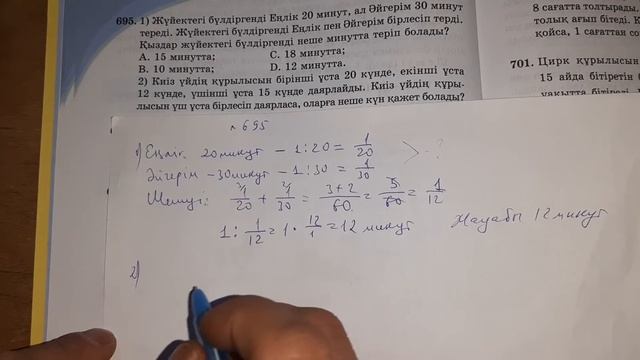 695. 1) Жүйектегі бүлдіргенді Еңлік 20 минут, ал Әйгерім 30 минут
тереді. Жүйектегі бүлдіргенді Еңлік пен Әйгерім бірлесіп терді.
Қыздар жүйектегі бүлдіргенді неше минутта теріп болады?
A. 15 минутта; C. 18 минутта;
B. 10 минутта; D. 12 минутта.
2) Киіз үйдің құрылысын бірінші ұста 20 күнде, екінші ұста
12 күнде, үшінші ұста 15 күнде даярлайды. Киіз үйдің құры-
лысын үш ұста бірлесіп даярласа, оларға неше күн қажет болады?
8 сағатта толтырады,
толық ағып бітеді. К
қойса, 1 сағаттан со
701. Цирк құрылысын
15 айда бітіретін
№695
1) Еңлік 20 минут – 1:20 = 1/20
Әйгерім – 30 минут – 1:30 = 1/30 > - ?
Шешуі: 1/20 + 1/30 = 3+2/60 = 5/60 = 1/12
1 : 1/12 = 1 · 12/1 = 12 минут Жауабы 12 минут
2)